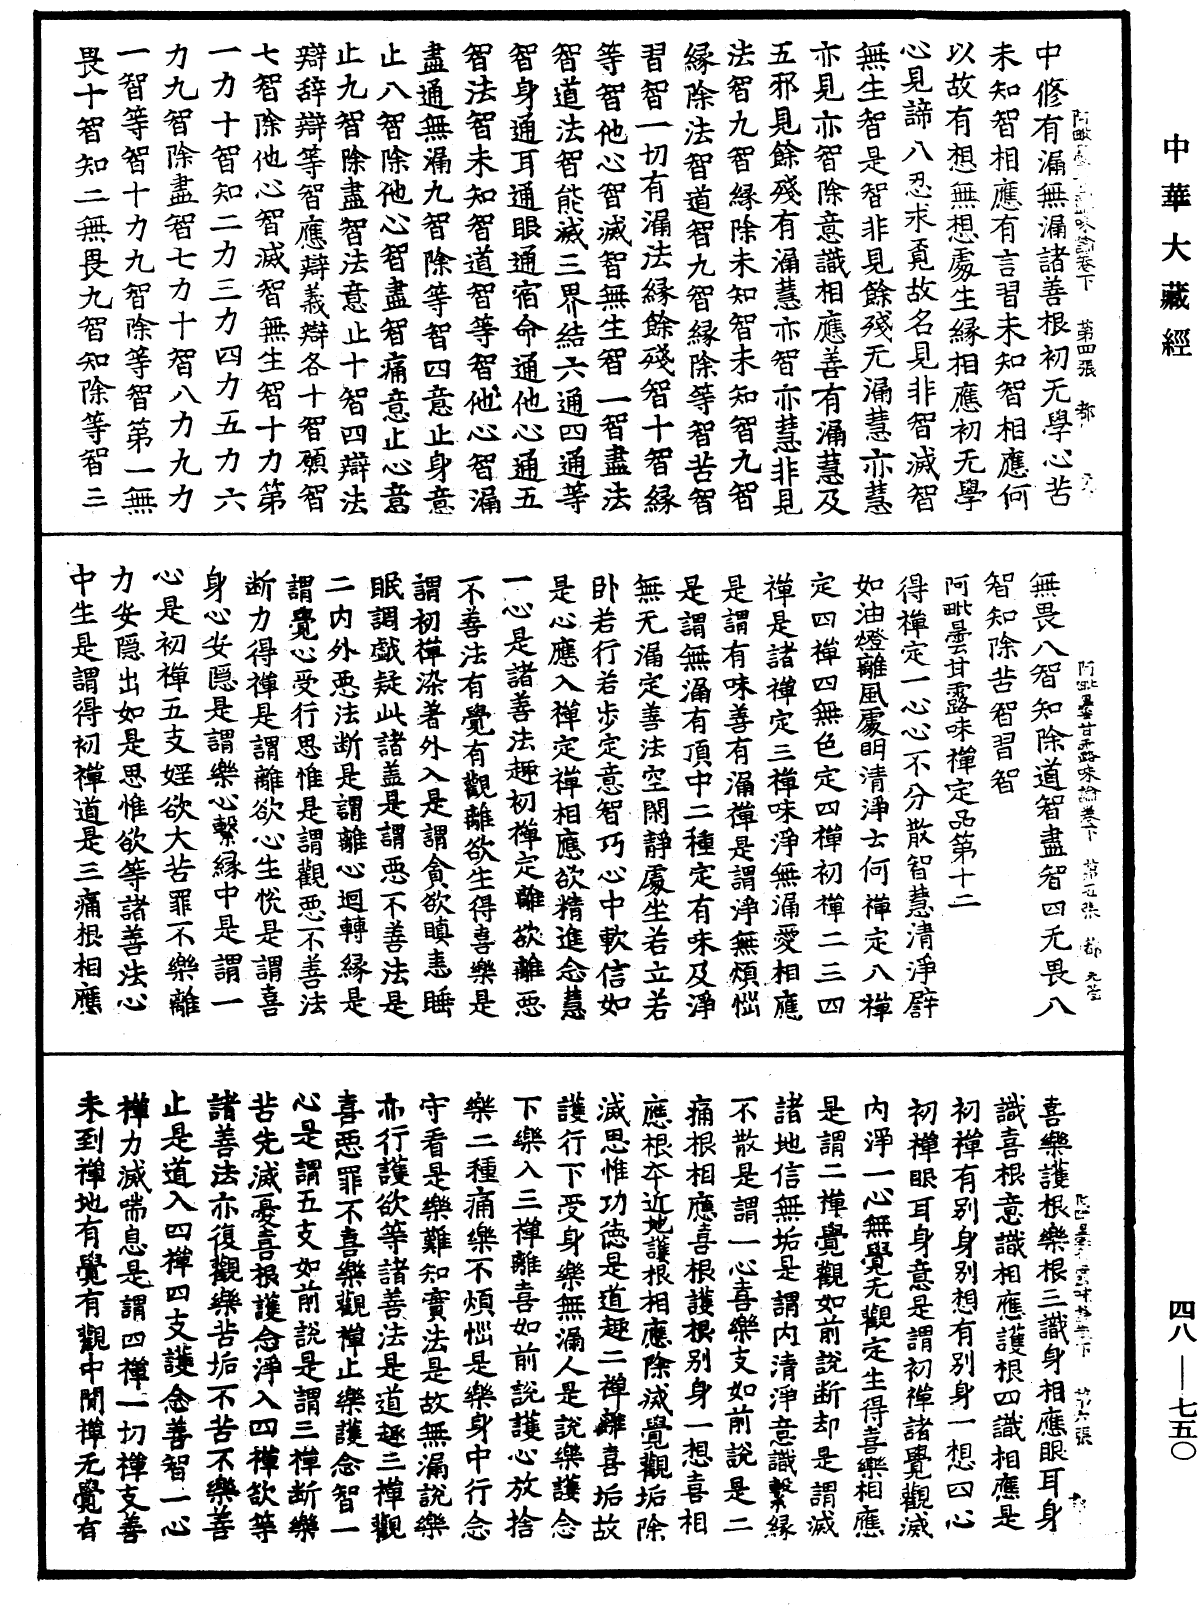 中華大藏經
中修有漏無漏諸善根初无學心苦
未知智相應有言習未知智相應何
以故有想無想處生緣相應初无學
心見諦八忍求覓故名見非智滅智
無生智是智非見餘殘无漏慧亦慧
亦見亦智除意識相應善有漏慧及
五邪見餘殘有漏慧亦智亦慧非見
法智九智緣除未知智未知智九智
緣除法智道智九智緣除等智苦智
習智一切有漏法緣餘殘智十智緣
等智他心智滅智無生智一智盡法
智道法智能滅三界結六通四通等
智身通耳通眼通宿命通他心通五
智法智未知智道智等智他心智漏
盡通無漏九智除等智四意止身意
止八智除他心智盡智痛意止心意
止九智除盡智法意止十智四辯法
辯辞辯等智應辯義辯各十智願智
七智除他心智滅智無生智十力第
一力十智知二力三力四力五力六
力九智除盡智七力十智八力九力
一智等智十力九智除等智第一無
畏十智知二無畏九智知除等智三
阿毗曇甘露味論卷下 第五張 都
無畏八智知除道智盡智四无畏八
智知除苦智習智
阿毗曇甘露味禪定品第十二
得禪定一心心不分散智慧清淨辟
如油燈離風處明清淨士何禪定八禪
定四禪四無色定四禪初禪二三四
禪是諸禪定三禪味淨無漏愛相應
是謂有味善有漏禪是謂淨無煩惱
是謂無漏有頂中二種定有味及淨
無无漏定善法空閑靜處坐若立若
卧若行若步定意智巧心中軟信如
是心應入禪定禪相應欲精進念慧
一心是諸善法趣初禪定離欲離惡
不善法有覺有觀離欲生得喜樂是
謂初禪染著外入是謂貪欲瞋恚睡
眠調戲疑此諸盖是謂惡不善法是
二內外惡法断是謂離心迴轉緣是
謂覺心受行思惟是謂觀惡不善法
断力得禪是謂離欲心生悅是謂喜
身心安隱是謂樂心繫緣中是謂一
心是初禪五支婬欲大苦罪不樂離
力安隱出如是思惟欲等諸善法心
中生是謂得初禪道是三痛根相應
喜樂護根樂根三識身相應眼耳身
識喜根意識相應護根四識相應是
初禪有别身别想有别身一想四心
初禪眼耳身意是謂初禪諸覺觀滅
內淨一心無覺无觀定生得喜樂相應
是謂二禪覺觀如前說断却是謂滅
諸地信無垢是謂內清淨意識繫緣
不散是謂一心喜樂支如前說是二
痛根相應喜根護根别身一想喜相
應根夲近地護根相應除滅覺觀垢除
滅思惟功德是道趣二禪離喜垢故
護行下受身樂無漏人是說樂護念
下樂入三禪離喜如前說護心放捨
樂二種痛樂不煩惱是樂身中行念
守看是樂難知實法是故無漏說樂
亦行護欲等諸善法是道趣三禪觀
喜惡罪不喜樂觀禪止樂護念智一
心是謂五支如前說是謂三禪断樂
苦先滅憂喜根護念淨入四禪欲等
諸善法亦復觀樂苦垢不苦不樂善
止是道入四禪四支護念善智一心
禪力滅喘息是謂四禪一切禪支善
未到禪地有覺有觀中間禪无覺有
四八—七五〇